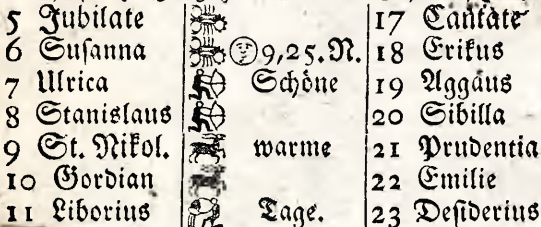 5 Jubilate 17 Cantate
6 Susanna 9,25. N. 18 Erikus
7 Ulrica Schöne 19 Aggäus
8 Stanislaus 20 Sibilla
9 St. Nikol. warme 21 Prudentia
10 Gordian 22 Emilie
11 Liborius Tage. 23 Desiderius